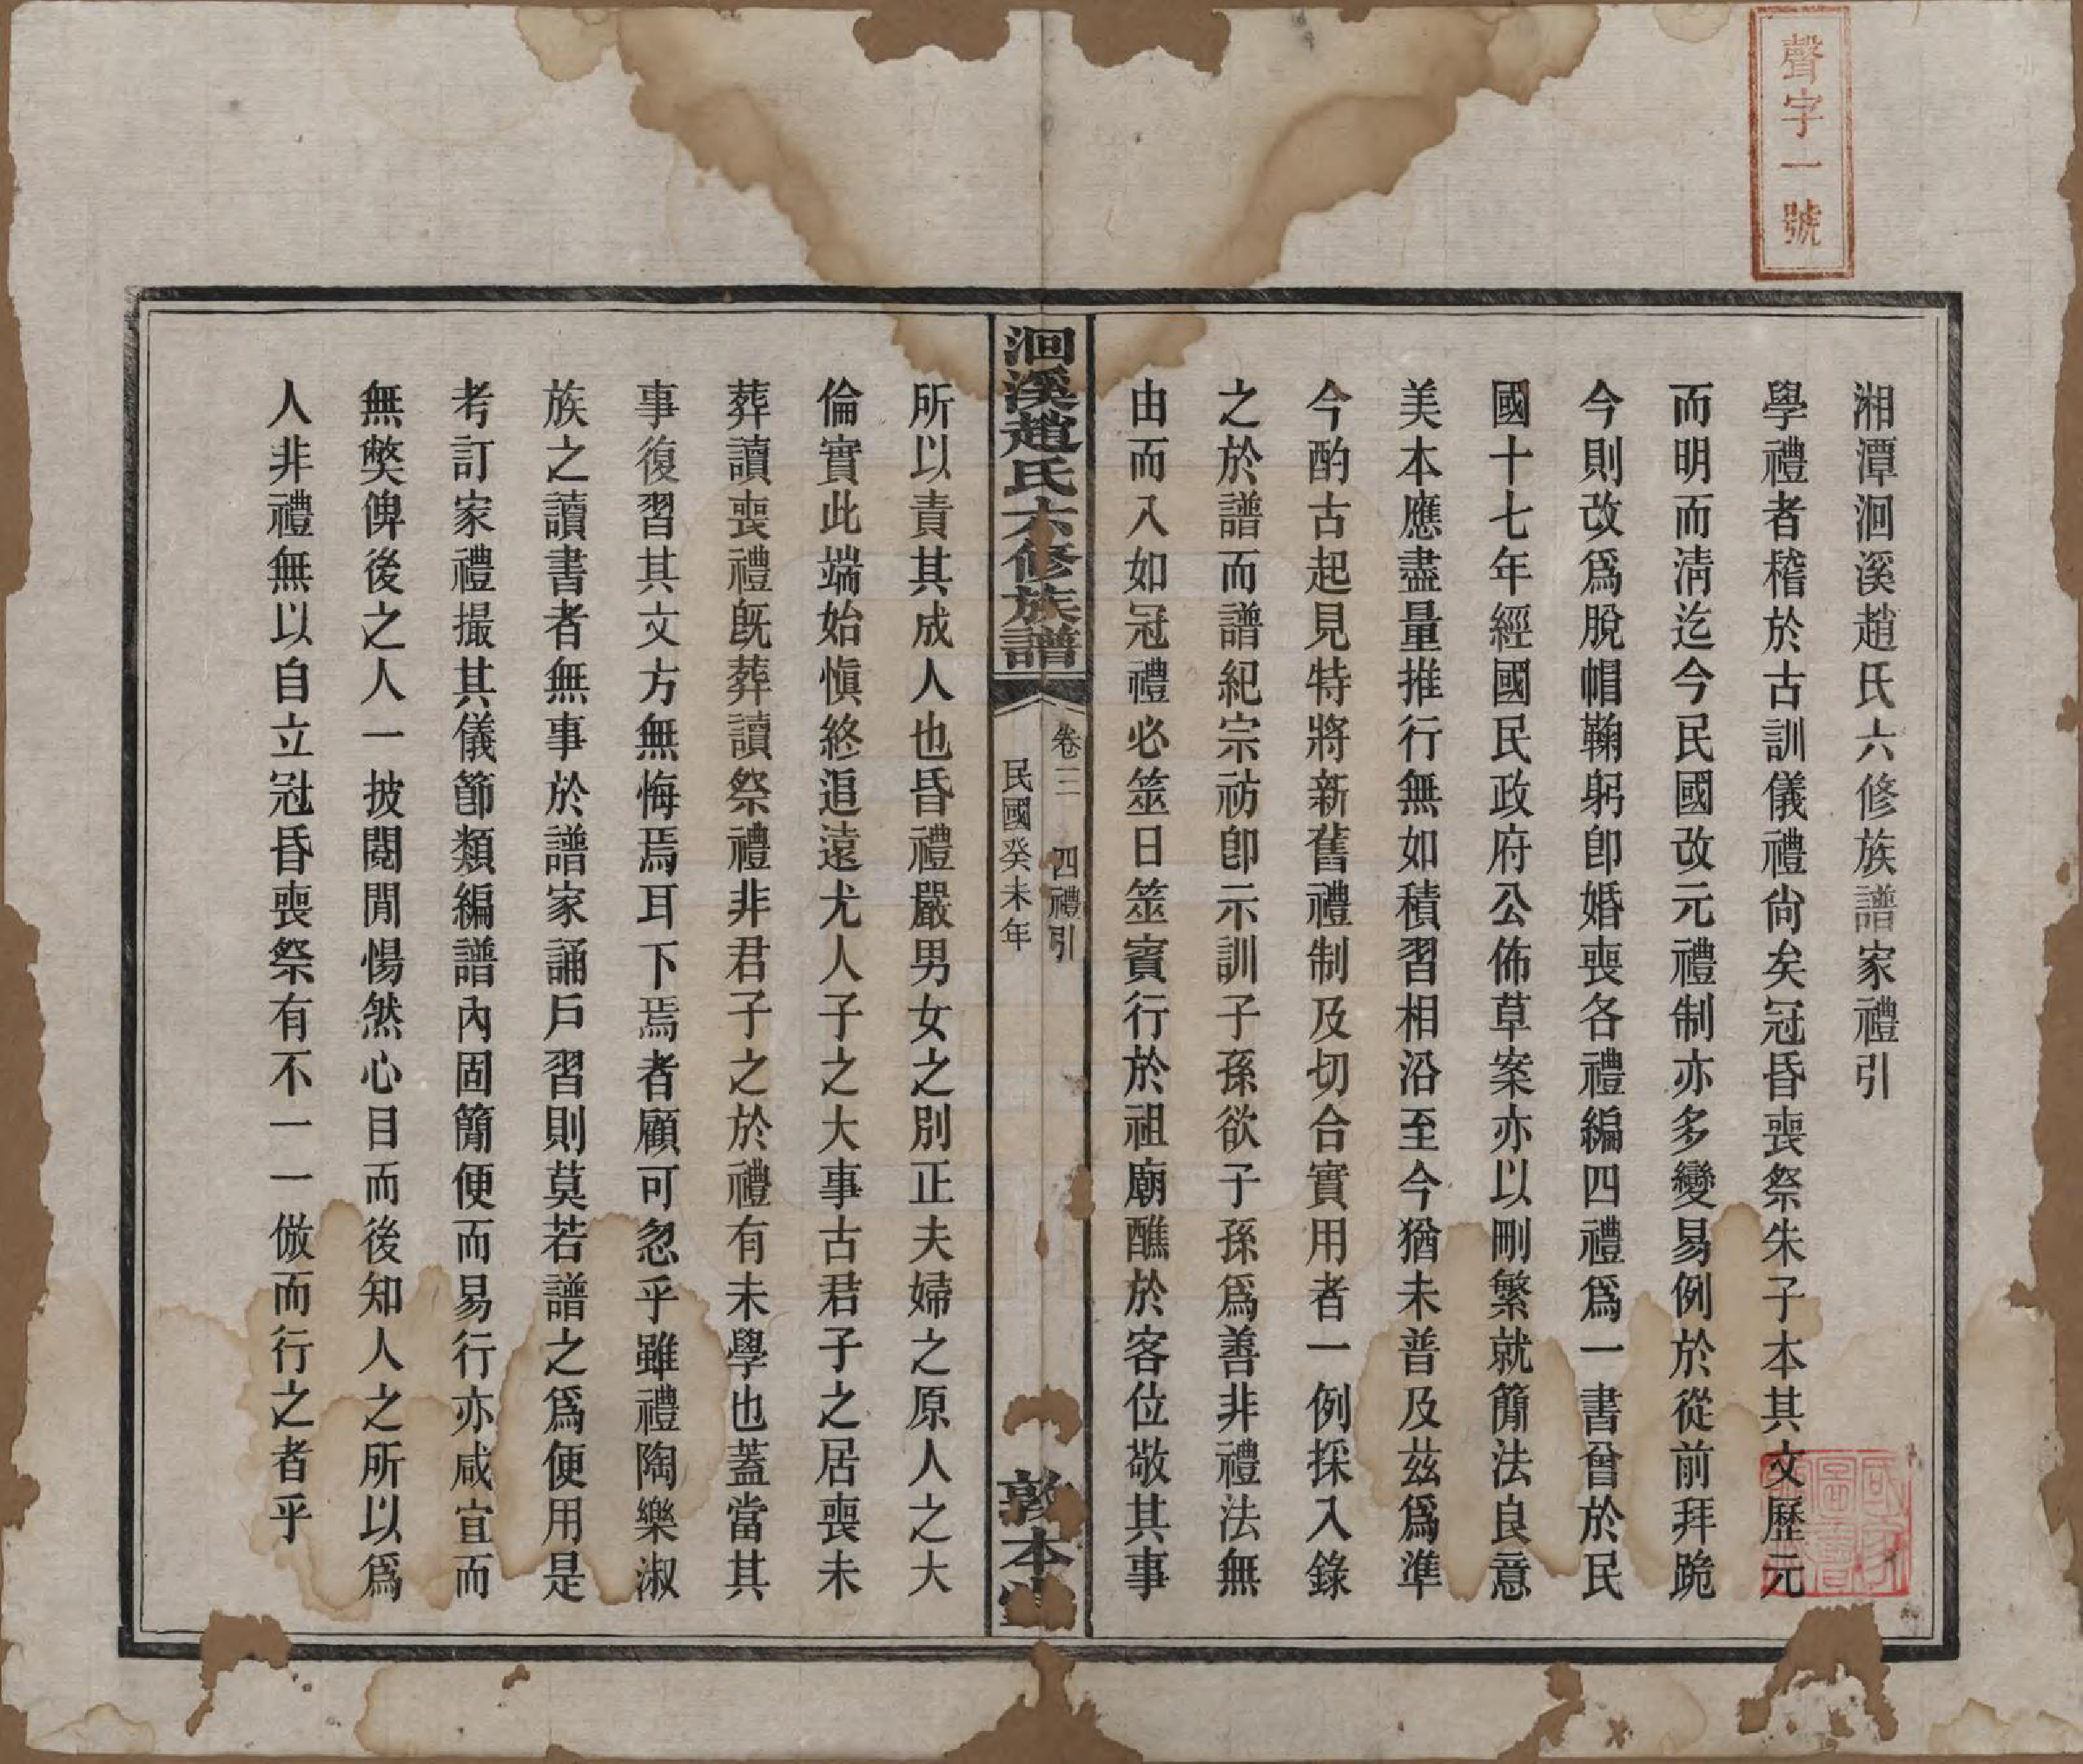 聲字一號
湘潭洄溪趙氏六修族譜家禮引
學禮者稽於古訓儀禮尙矣冠昏喪祭朱子本其文歷元
而明而淸迄今民國改元禮制亦多變易例於從前拜跪
今則改爲脫帽鞠躬卽婚喪各禮編四禮爲一書曾於民
國十七年經國民政府公佈草案亦以刪繁就簡法良意
美本應盡量推行無如積習相沿至今猶未普及茲爲準
今酌古起見特將新舊禮制及切合實用者一例採入錄
之於譜而譜紀宗祊卽示訓子孫欲子孫爲善非禮法無
由而入如冠禮必筮日筮賓行於祖廟醮於客位敬其事
洄溪趙氏六修族譜
卷三 四禮引
民國癸未年
敦本堂
所以責其成人也昏禮嚴男女之別正夫婦之原人之大
倫實此端始愼終追遠尤人子之大事古君子之居喪未
葬讀喪禮旣葬讀祭禮非君子之於禮有未學也蓋當其
事復習其文方無悔焉耳下焉者顧可忽乎雖禮陶樂淑
族之讀書者無事於譜家誦戶習則莫若譜之爲便用是
考訂家禮撮其儀節類編譜內固簡便而易行亦咸宜而
無獘俾後之人一披閱間惕然心目而後知人之所以爲
人非禮無以自立冠昏喪祭有不一一倣而行之者乎